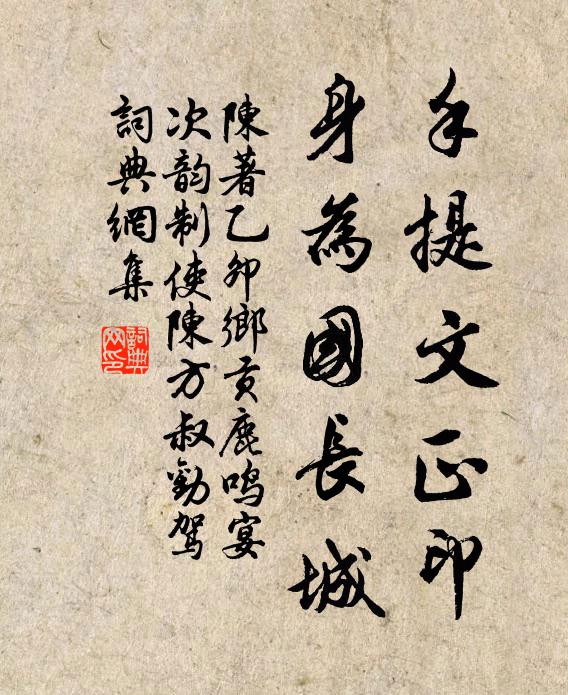 手提文正印
身為國長城
陳著乙卯鄉貢鹿鳴宴
次韵制使陳方叔勸駕
詞典網集
詞典网印